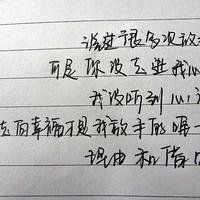 试过很多次放
可是你没走进我心
我没听到心
去向幸福才是我放手的唯一
理由和借口